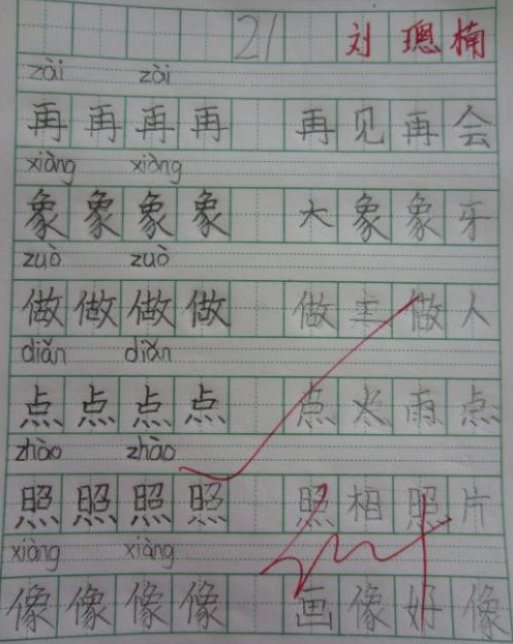 21 刘璁楠
zài zài
再再再再 再见再会
xiàng xiàng
象象象象 大象象牙
zuò zuò
做做做做 做主做人
diǎn diǎn
点点点点 点火雨点
zhào zhào
照照照照 照相照片
xiàng xiàng
像像像像 画像好像